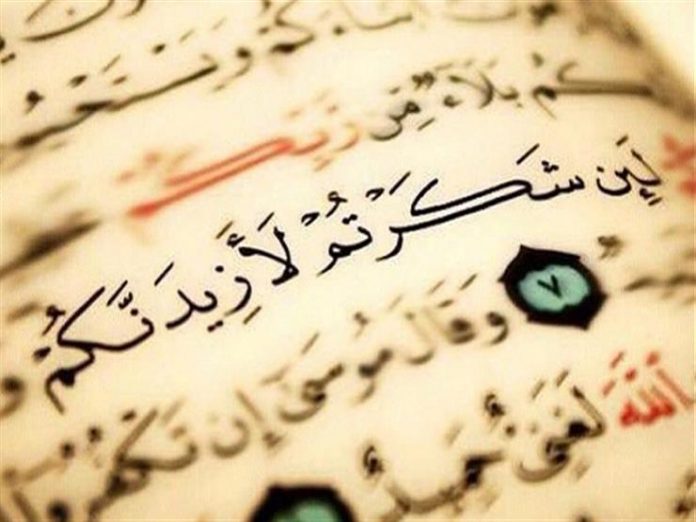 وَيَسْتَحْيُو
كُم بَلَاءٌ مِّن رَّبِّكُمْ
لَئِن شَكَرْتُمْ لَأَزِيدَنَّكُمْ
٧ وَقَالَ مُوسَىٰ إِن تَكْفُرُوا
اللَّهَ لَغَنِيٌّ حَمِيدٌ